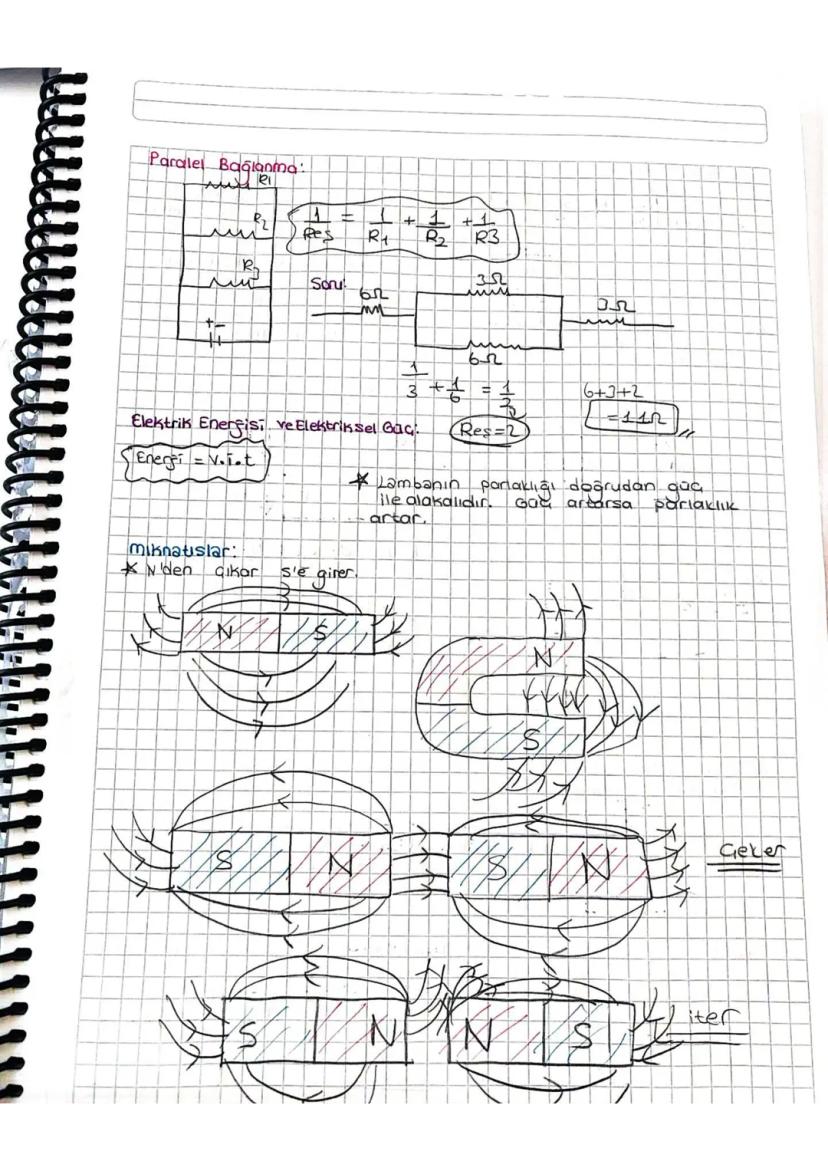 Paralel Bağlanma:
R1
R2
R3
+ -
1/Reş = 1/R1 + 1/R2 + 1/R3
Soru:
6Ω
3Ω
6Ω
3Ω
1/3 + 1/6 = 1/2
Reş=2
6+3+2
=11Ω
Elektrik Energisi ve Elektriksel Güç:
Energi = V.i.t
* Lambanın parlaklığı doğrudan güç
ile alakalıdır. Güç artarsa parlaklık
artar.
mıknatıslar:
* N'den çıkar S'e girer.
N S
N
S
S N S N
Çeker
S N N S
iter